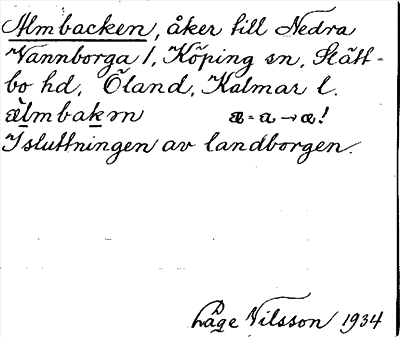 Almbacken, åker till Nedra
Vannborga 1, Köping sn, Slätt-
bo hd, Öland, Kalmar l.
älmbakm æ = a → œ!
I sluttningen av landborgen.
Låge Nilsson 1934